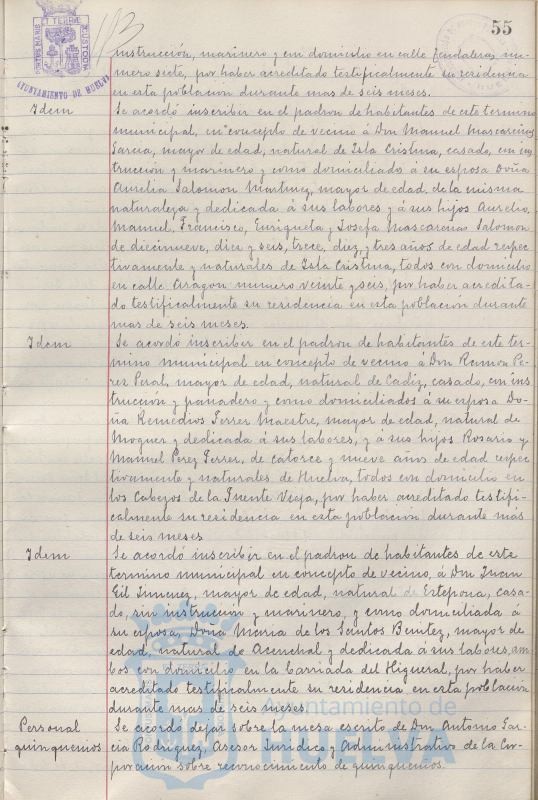 55
PORTUS MARIS ET TERRE CUSTODIA
AYUNTAMIENTO DE HUELVA
instrucción, marinero y con domicilio en calle Zendalera, nu-
mero siete, por haber acreditado testificalmente su residencia
en esta poblacion durante mas de seis meses.
Idem
Se acordó inscribir en el padron de habitantes de este termino
municipal, en concepto de vecino á Don Manuel Mascarenas
Garcia, mayor de edad, natural de Isla Cristina, casado, con ins-
trucción y marinero y como domiciliados á su esposa Doña
Aurelia Salomon Martinez, mayor de edad, de la misma
naturaleza y dedicada á sus labores y á sus hijos Aurelio,
Manuel, Francisco, Enriqueta y Josefa Mascarenas Salomon
de diecinueve, diez y seis, trece, diez, y tres años de edad respec-
tivamente y naturales de Isla Cristina, todos con domicilio
en calle Aragon numero veinte y seis, por haber acredita-
do testificalmente su residencia en esta poblacion durante
mas de seis meses.
Idem
Se acordó inscribir en el padron de habitantes de este ter-
mino municipal en concepto de vecino á Don Ramon Pe-
rez Peral, mayor de edad, natural de Cadiz, casado, con ins-
trucción y panadero y como domiciliados á su esposa Do-
ña Remedios Ferrer Maestre, mayor de edad, natural de
Moguer y dedicada á sus labores, y á sus hijos Rosario y
Manuel Perez Ferrer, de catorce y nueve años de edad respec-
tivamente y naturales de Huelva, todos con domicilio en
los Cabezos de la Fuente Vieja, por haber acreditado testifi-
calmente su residencia en esta poblacion durante más
de seis meses
Idem
Se acordó inscribir en el padron de habitantes de este
termino municipal en concepto de vecino, á Don Juan
Gil Jimenez, mayor de edad, natural de Estepona, casa-
do, sin instrucción y marinero, y como domiciliada á
su esposa, Doña Maria de los Santos Benitez, mayor de
edad, natural de Acenchal y dedicada á sus labores, am-
bos con domicilio en la Barriada del Higueral, por haber
acreditado testificalmente su residencia en esta poblacion
durante mas de seis meses.
Personal
quinquenios
Se acordó dejar sobre la mesa escrito de Don Antonio Gar-
cía Rodriguez, Asesor Juridico y Administrativo de la Cor-
poracion sobre reconocimiento de quinquenios.
Ayuntamiento de
HUELVA